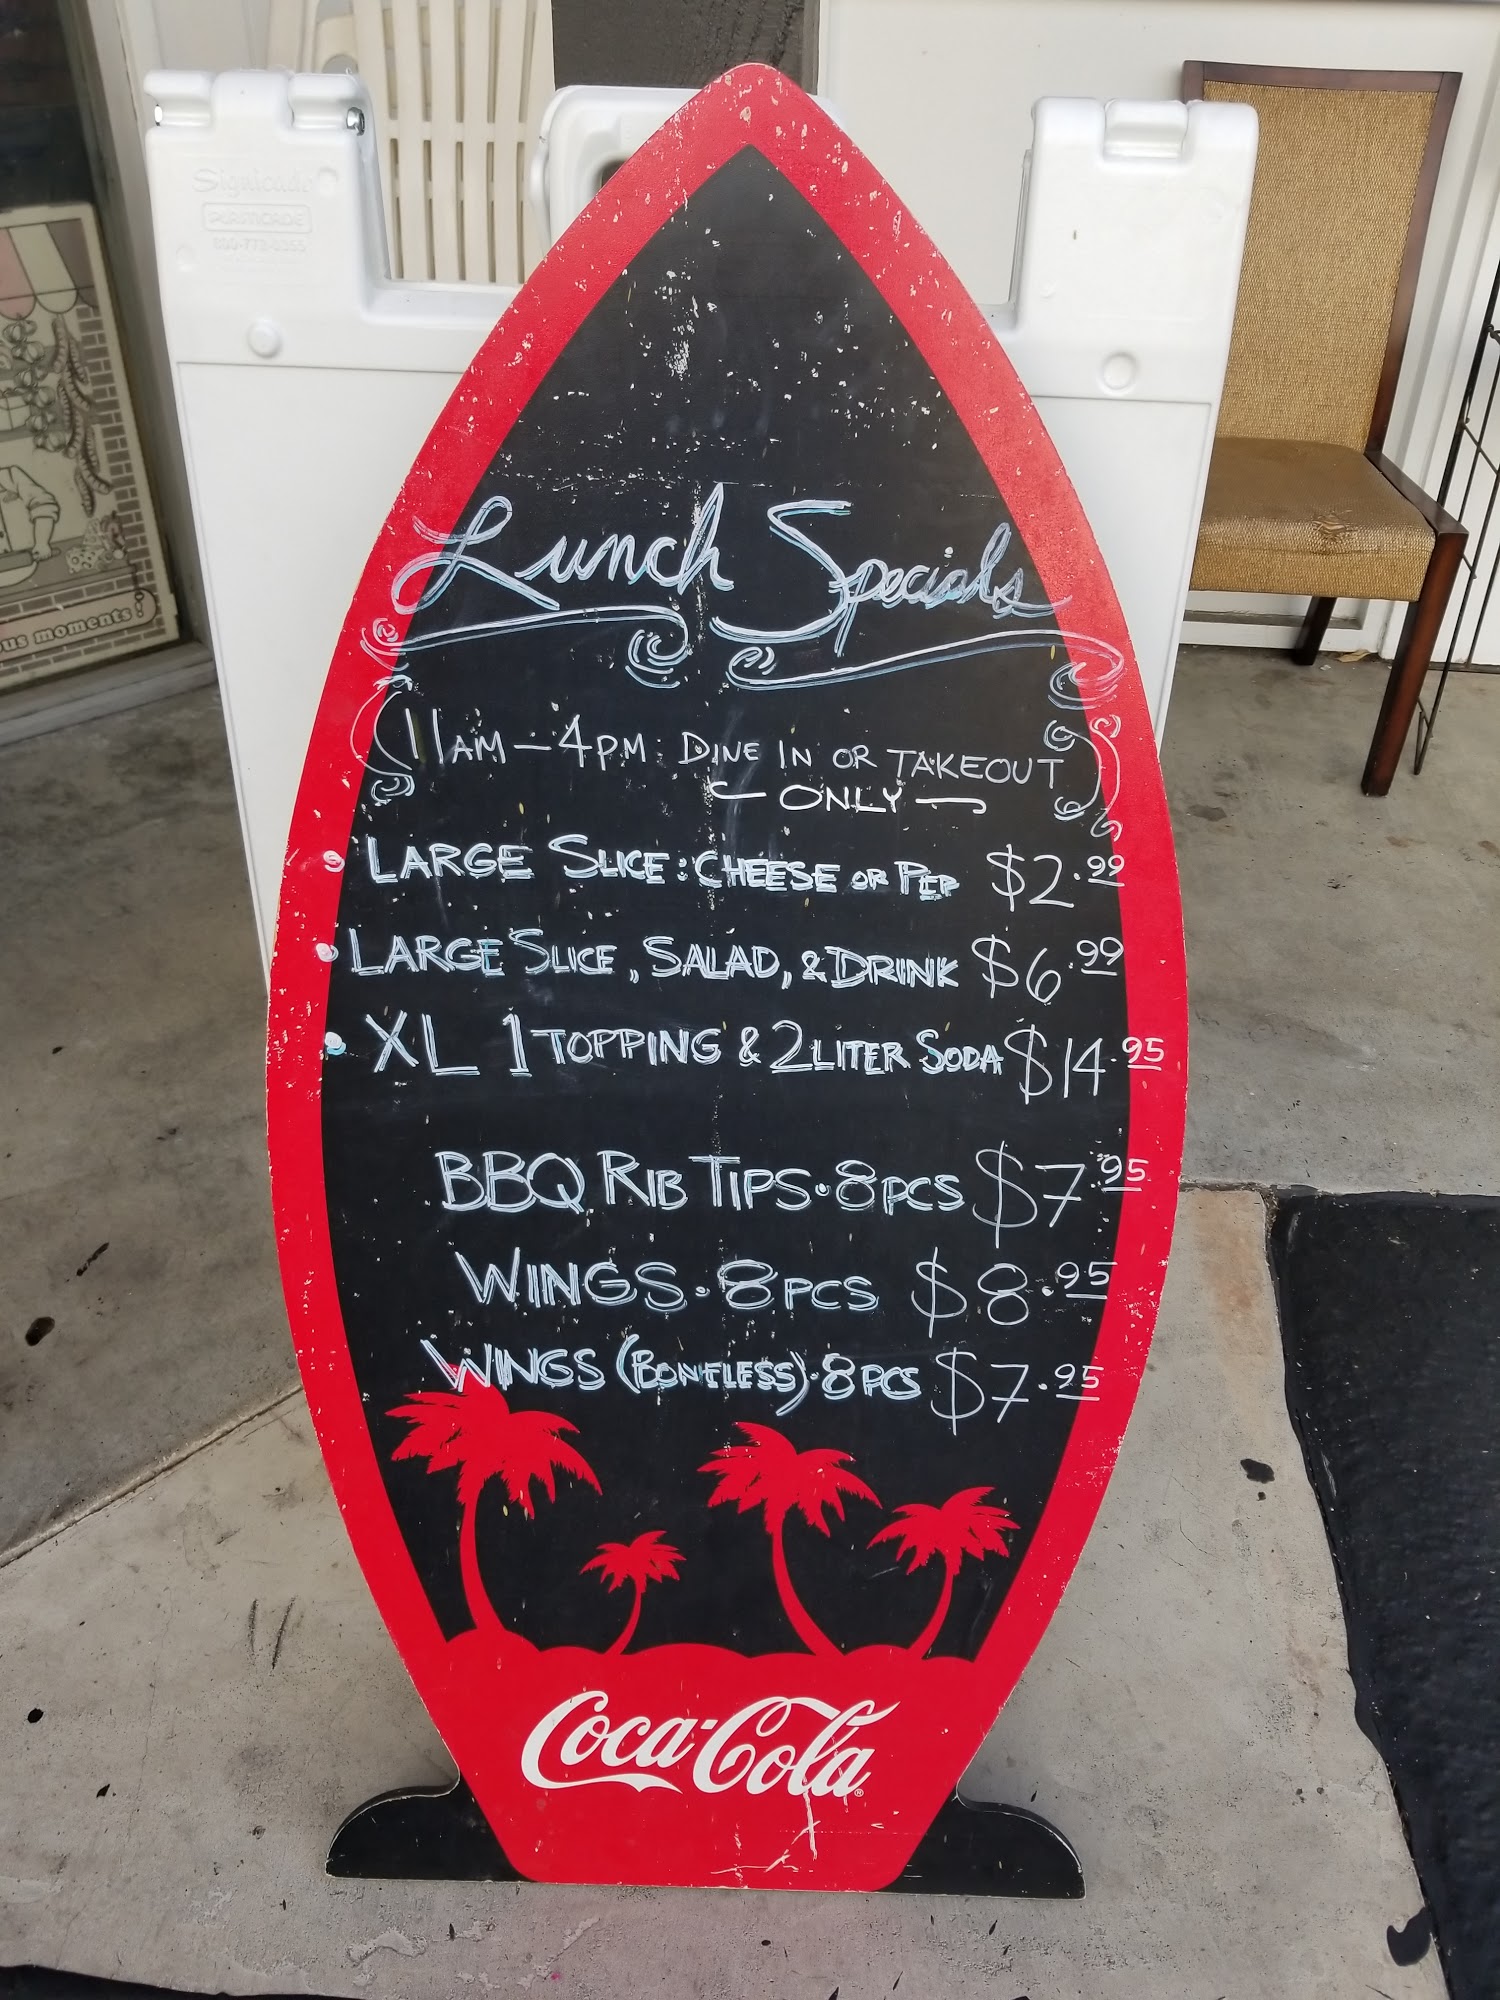 Signicade
PLASTICADE
Lunch Specials
11AM – 4PM: DINE IN OR TAKEOUT
ONLY
• LARGE SLICE: CHEESE OR PEP $2.99
• LARGE SLICE, SALAD, & DRINK $6.99
• XL 1 TOPPING & 2 LITER SODA $14.95
BBQ RIB TIPS • 8PCS $7.95
WINGS • 8PCS $8.95
WINGS (BONELESS) • 8PCS $7.95
Coca-Cola®
moments